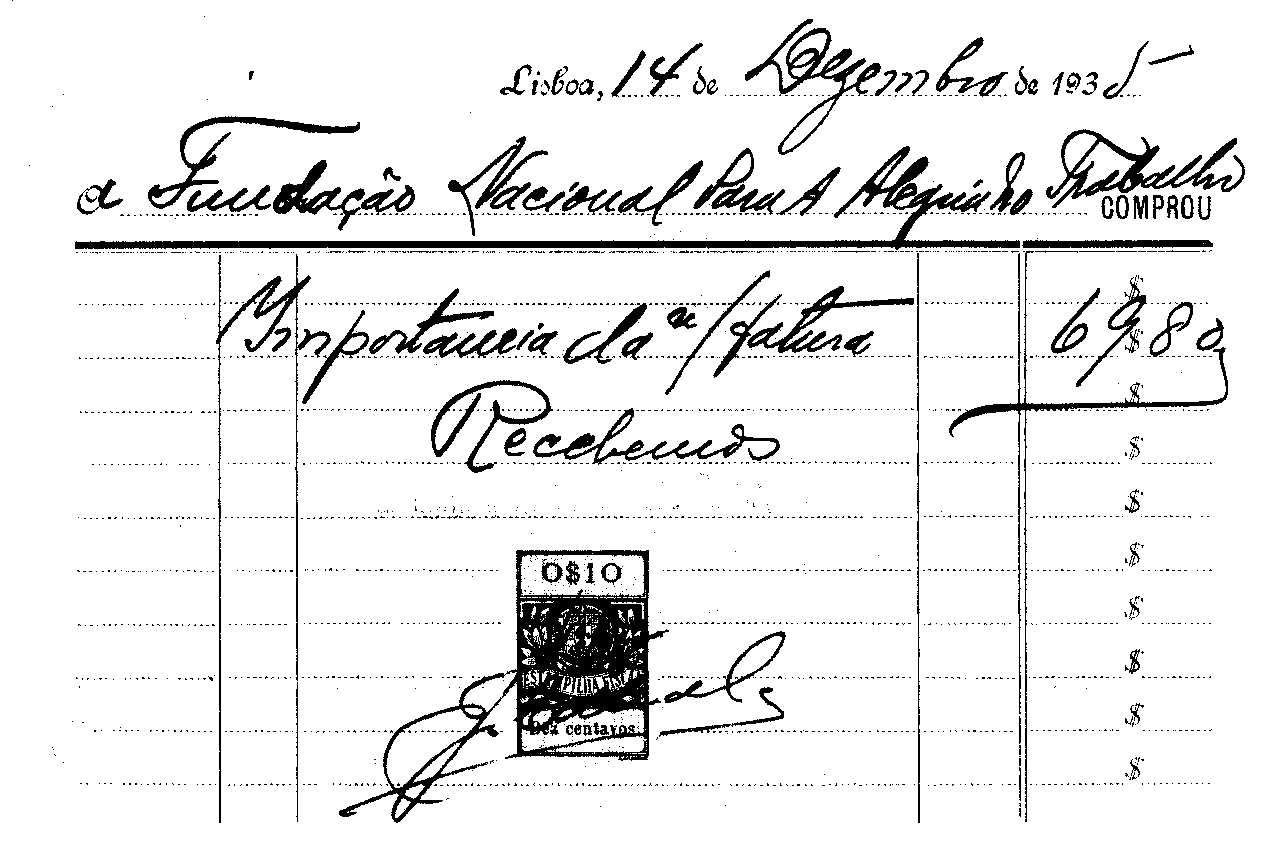 Lisboa, 14 de Dezembro de 1935
a Fundação Nacional Para A Alegria no Trabalho
COMPROU
$
Importancia da n/ fatura 69$80
$
Recebemos $
$
$
0$10
$
$
ESTAMPILHA FISCAL
$
Dez centavos
$